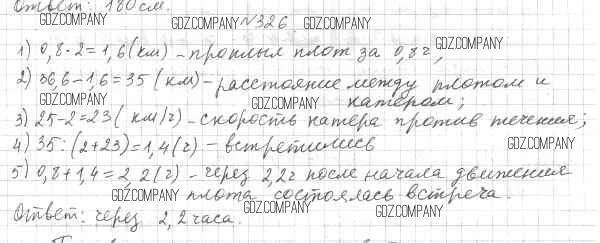 Ответ: 180 см.
GDZ.COMPANY GDZ.COMPANY №326 GDZ.COMPANY
1) 0,8·2=1,6(км) – проплыл плот за 0,8 ч, GDZ.COMPANY
2) 36,6–1,6=35 (км) – расстояние между плотом и
GDZ.COMPANY GDZ.COMPANY катером;
3) 25–2=23( км/ч) – скорость катера против течения;
4) 35:(2+23)=1,4(ч) – встретились GDZ.COMPANY
5) 0,8+1,4=2,2(ч) – через 2,2ч после начала движения
GDZ.COMPANY плота состоялась встреча.
Ответ: через 2,2 часа. GDZ.COMPANY GDZ.COMPANY